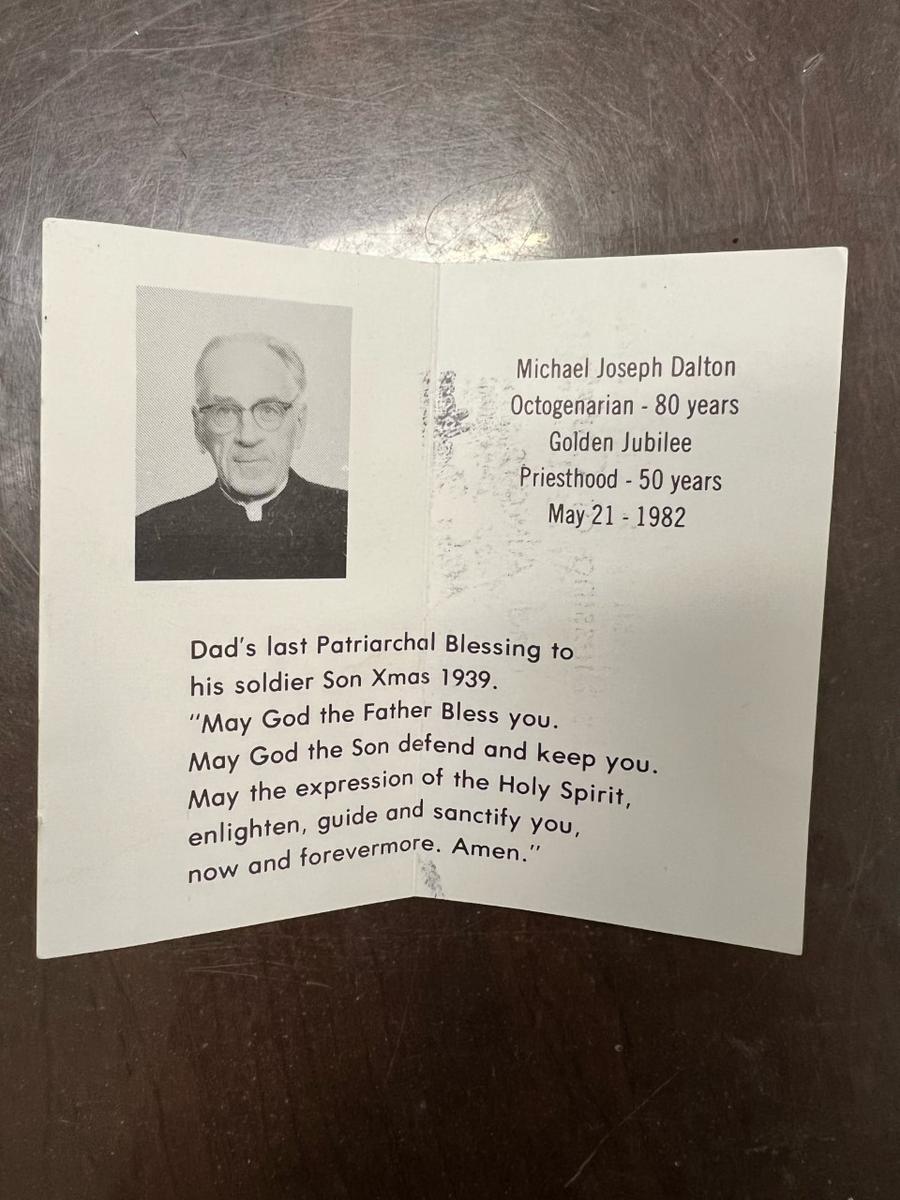 Michael Joseph Dalton
Octogenarian - 80 years
Golden Jubilee
Priesthood - 50 years
May 21 - 1982
Dad's last Patriarchal Blessing to
his soldier Son Xmas 1939.
"May God the Father Bless you.
May God the Son defend and keep you.
May the expression of the Holy Spirit,
enlighten, guide and sanctify you,
now and forevermore. Amen."